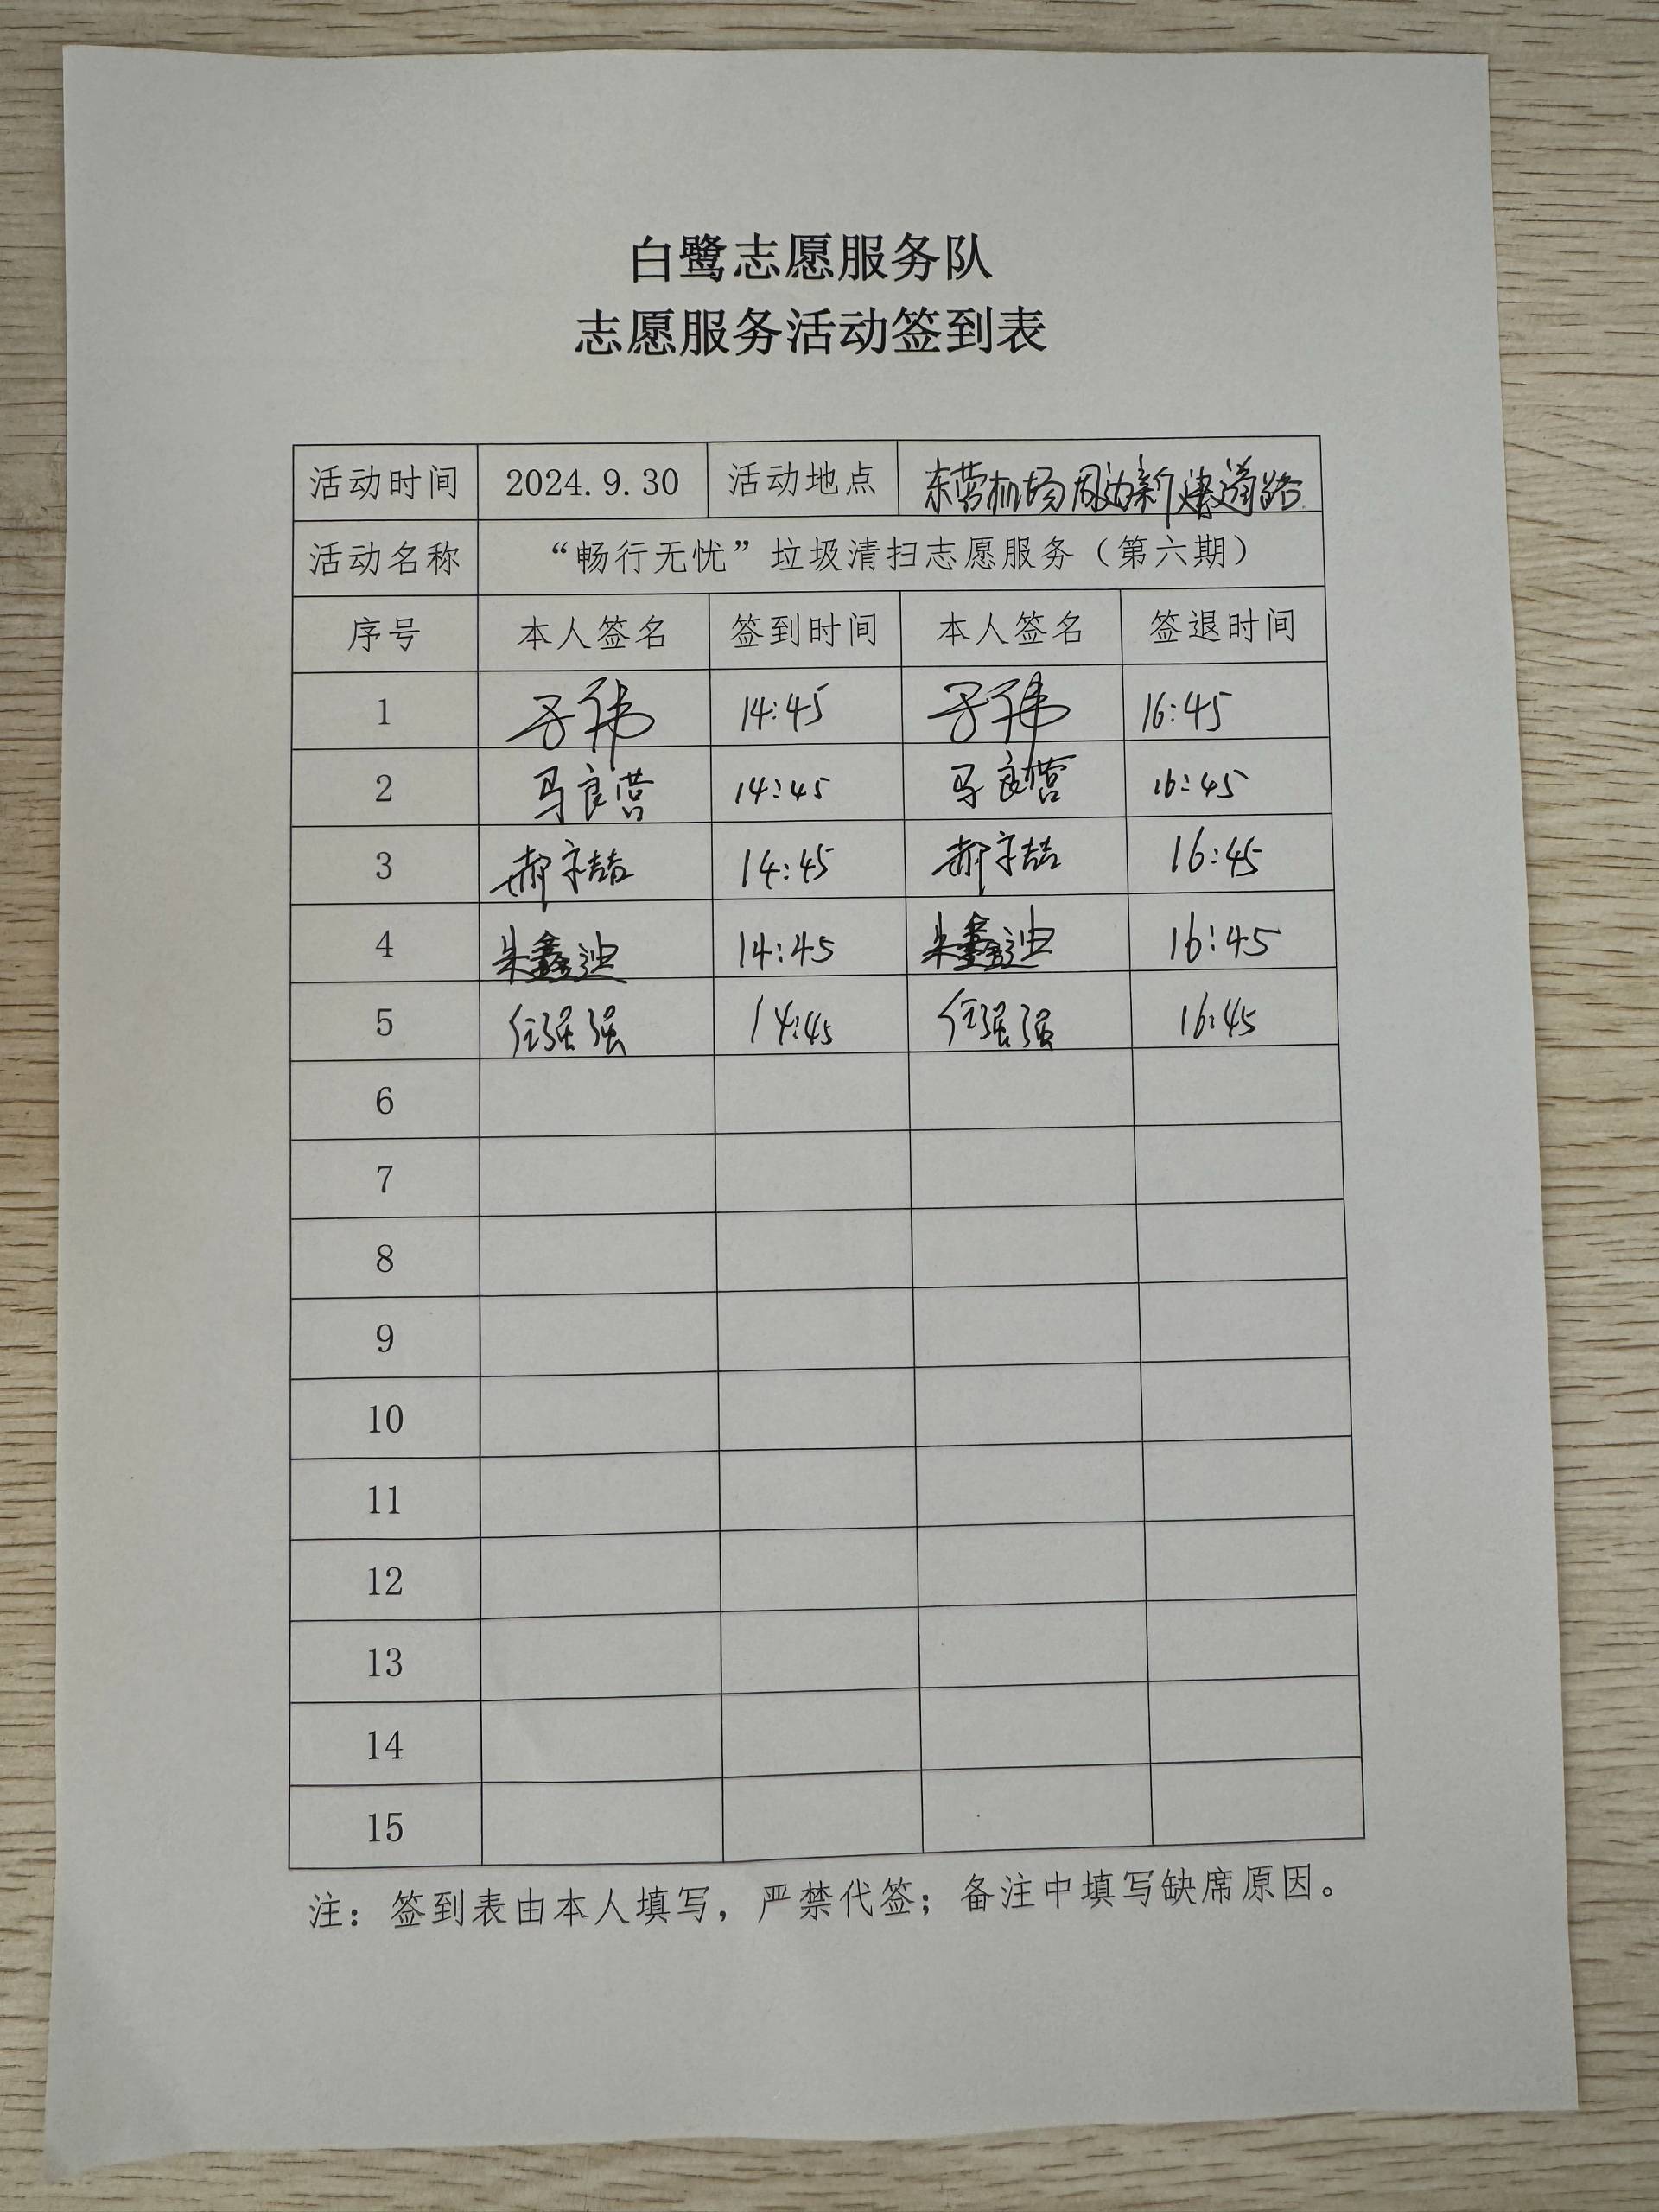 白鹭志愿服务队
志愿服务活动签到表
活动时间 2024.9.30 活动地点 东营机场周边新建道路
活动名称 “畅行无忧”垃圾清扫志愿服务（第六期）
序号 本人签名 签到时间 本人签名 签退时间
1 14:45 16:45
2 马良营 14:45 马良营 16:45
3 14:45 16:45
4 朱鑫迪 14:45 朱鑫迪 16:45
5 任强强 14:45 任强强 16:45
6
7
8
9
10
11
12
13
14
15
注：签到表由本人填写，严禁代签；备注中填写缺席原因。